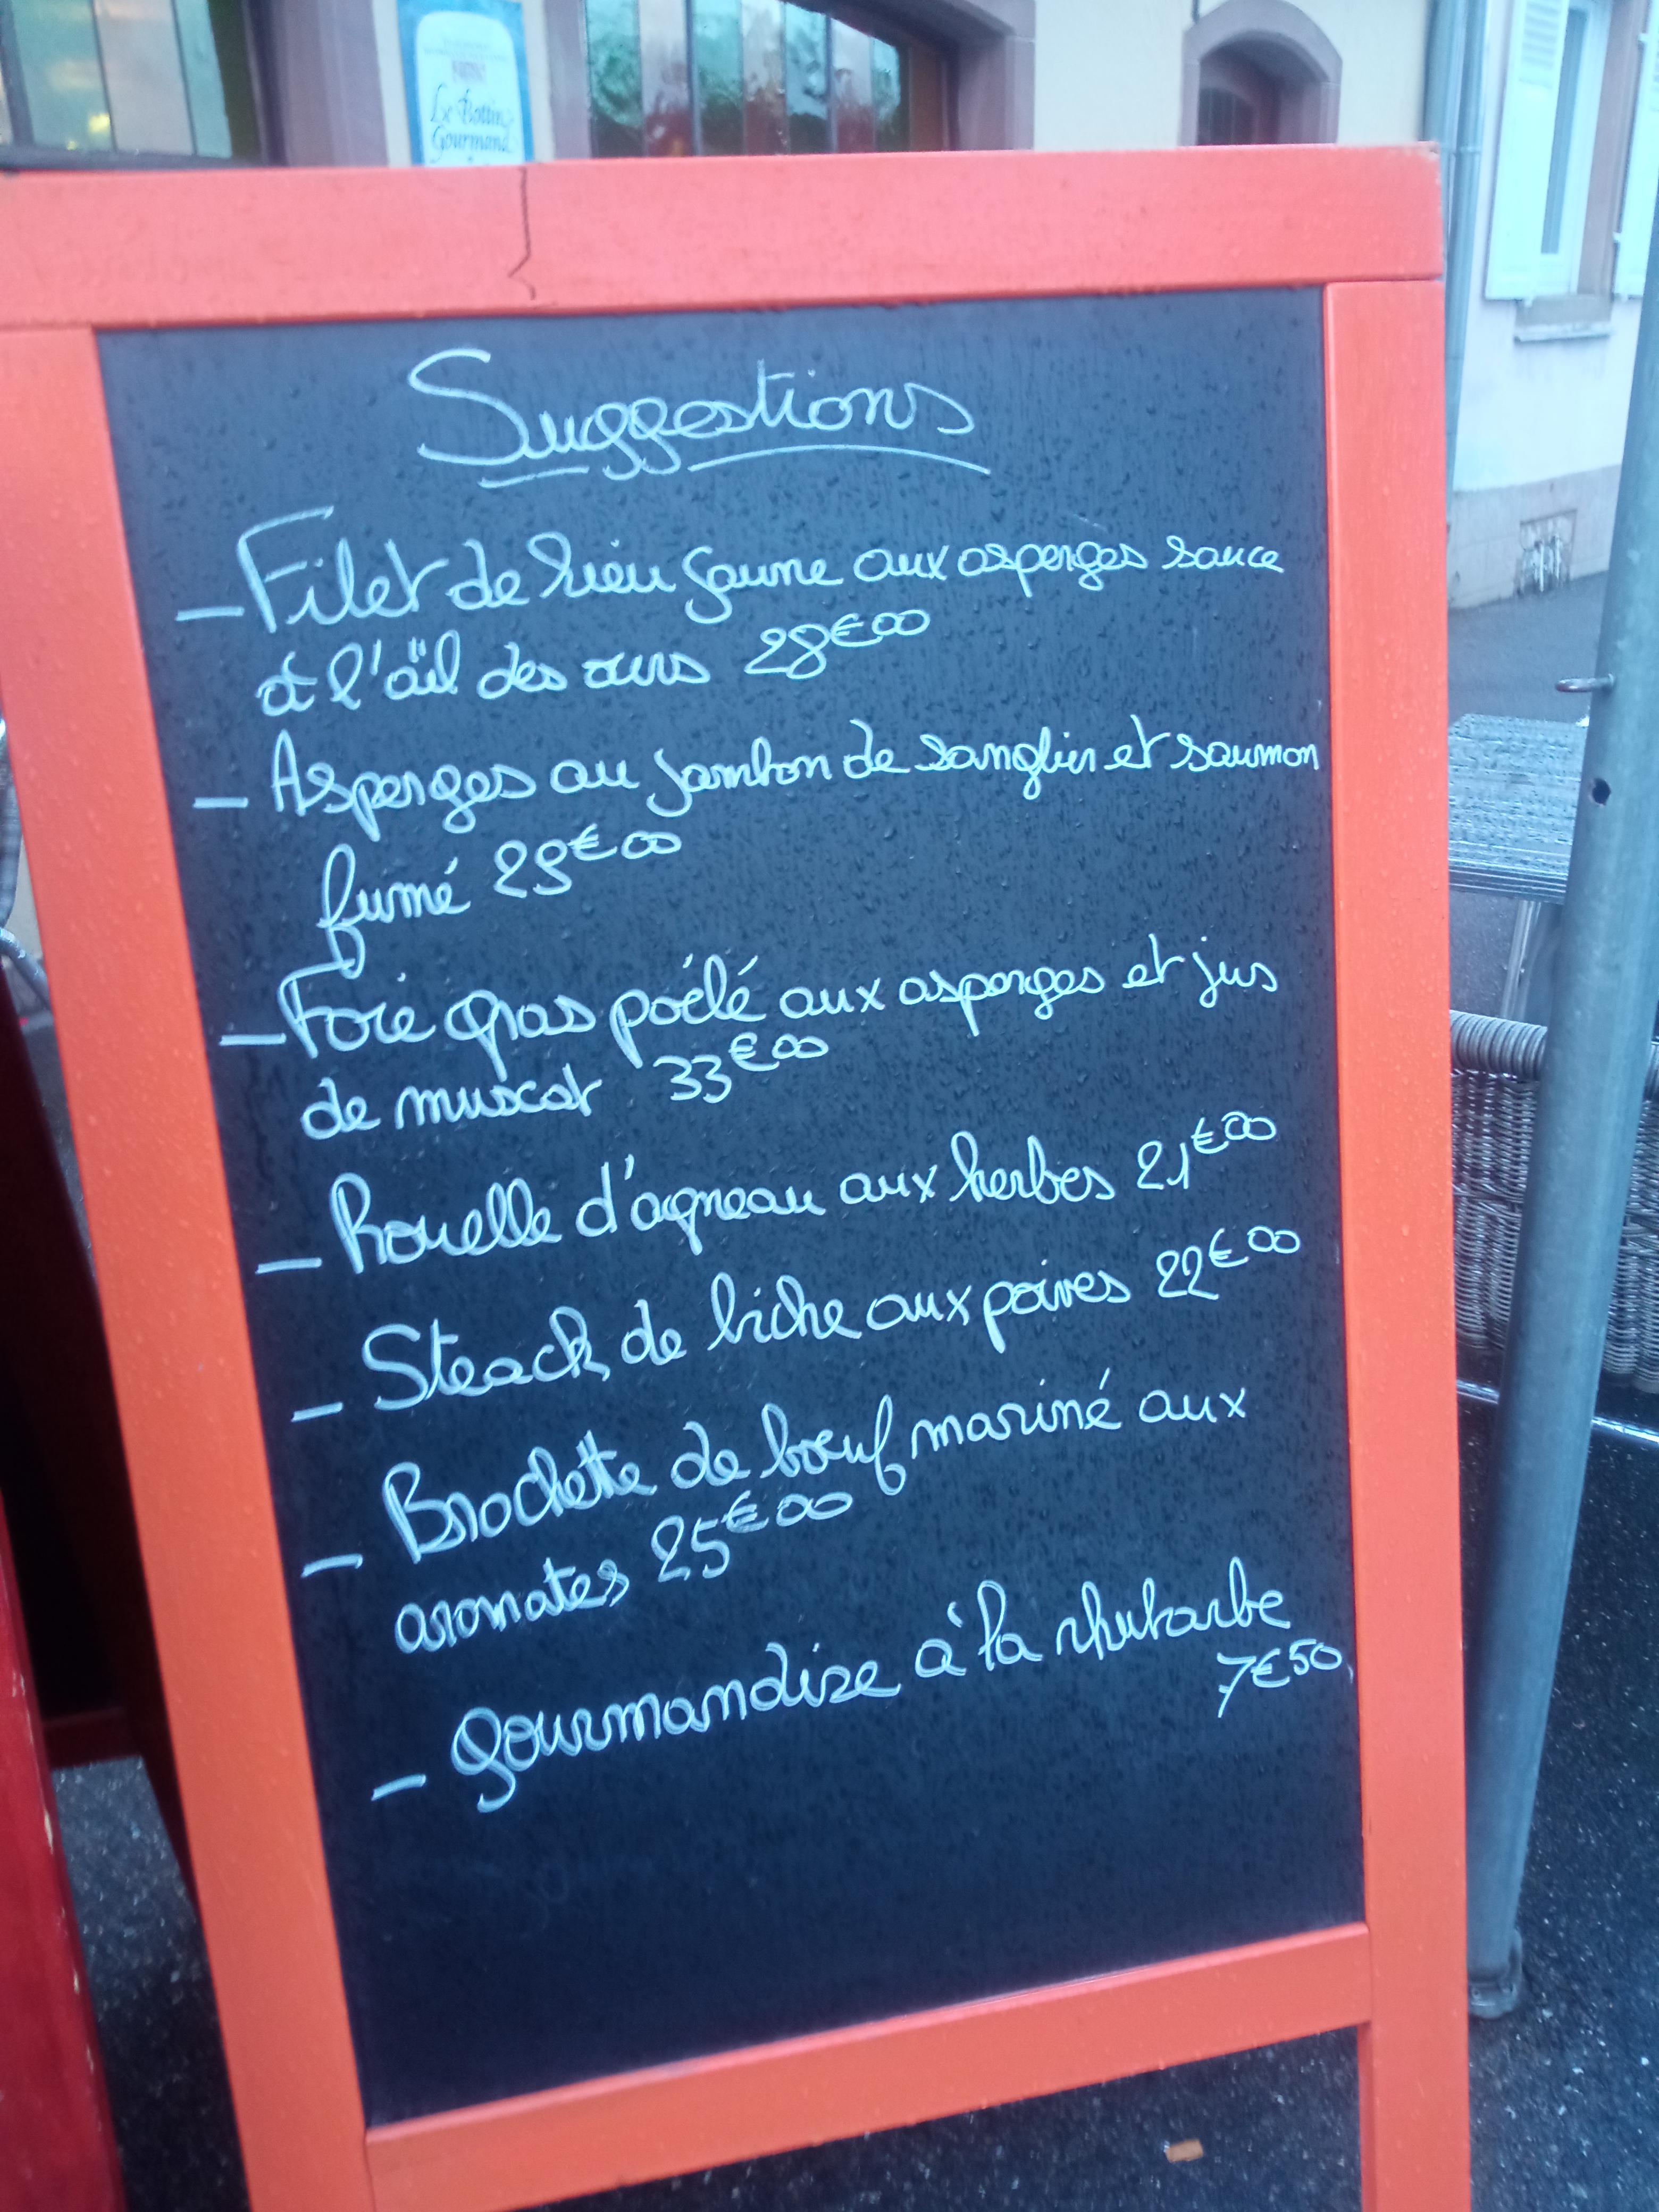 Le Bottin
Gourmand
Suggestions
- Filet de lieu jaune aux asperges sauce
à l'aïl des ours 28€00
- Asperges au jambon de sanglier et saumon
fumé 29€00
- Foie gras poêlé aux asperges et jus
de muscat 33€00
- Rouelle d'agneau aux herbes 21€00
- Steack de biche aux poivres 22€00
- Brochette de bœuf mariné aux
aromates 25€00
- Gourmandise à la rhubarbe
7€50